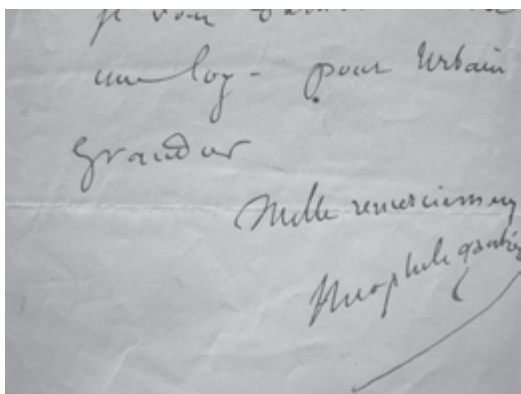 je vous
une loge pour Urbain
Grandier
Mille remerciemens
Theophile Gautier